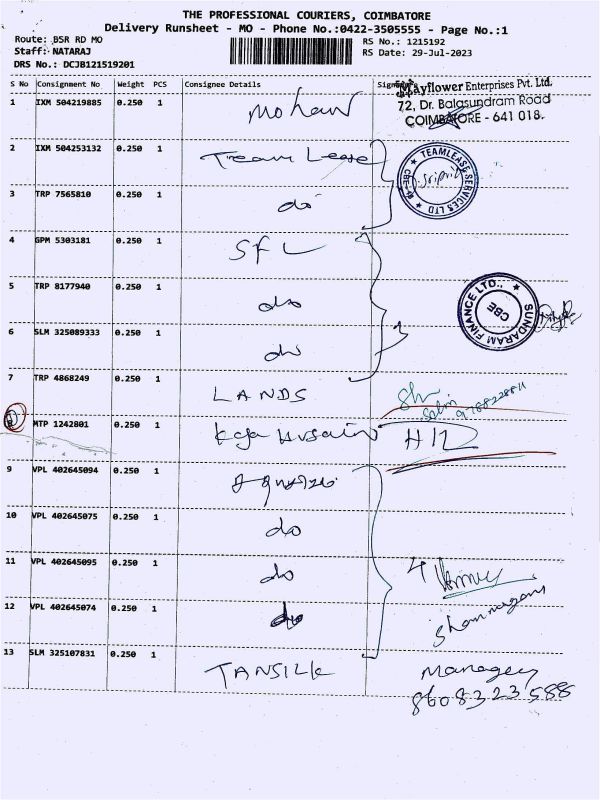 THE PROFESSIONAL COURIERS, COIMBATORE
Delivery Runsheet - MO - Phone No.:0422-3505555 - Page No.:1
Route: BSR RD MO
RS No.: 1215192
Staff: NATARAJ
RS Date: 29-Jul-2023
DRS No.: DCJB121519201
S No Consignment No Weight PCS Consignee Details
Mayflower Enterprises Pvt. Ltd.
72, Dr. Balasundram Road
COIMBATORE - 641 018.
1 IXM 504219885 0.250 1 Mohan
2 IXM 504253132 0.250 1 Team Lease
TEAMLEASE SERVICES LTD
3 TRP 7565810 0.250 1 do
4 GPM 5303181 0.250 1 SFL
5 TRP 8177940 0.250 1 do
SUNDARAM FINANCE LTD.,
CBE
6 SLM 325089333 0.250 1 do
7 TRP 4868249 0.250 1 LANDS
8 MTP 1242801 0.250 1 Kaja Husain
9 VPL 402645094 0.250 1
10 VPL 402645075 0.250 1 do
11 VPL 402645095 0.250 1 do
4
12 VPL 402645074 0.250 1 do
13 SLM 325107831 0.250 1 TANSILK
Manager
8608323588